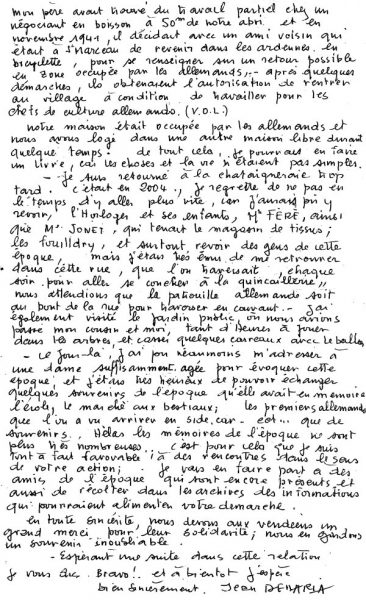 mon père avait trouvé du travail partiel chez un
négociant en boisson à 50m de notre abri. et en
novembre 1941, il décidait avec un ami voisin qui
était à St Marceau de revenir dans les ardennes. en
bicyclette, pour se renseigner sur un retour possible
en zone occupée par les allemands, - après quelques
démarches, ils obtenaient l'autorisation de rentrer
au village à condition de travailler pour les
chefs de culture allemands. (V.O.L.)
notre maison était occupée par les allemands et
nous avons logé dans une autre maison libre durant
quelque temps. de tout cela, je pourrais en faire
un livre, car les choses et la vie n'étaient pas simples.
- je suis retourné à la chataigneraie trop
tard. c'était en 2004., je regrette de ne pas en
le temps d'y aller plus vite, car j'aurais pu y
revoir, l'Horloger et ses enfants, Mr FERÉ, ainsi
que Mr JONET, qui tenait le magasin de tissus;
les, et surtout revoir des gens de cette
époque, mais j'étais très ému de me retrouver
dans cette rue, que l'on traversait, chaque
soir pour aller se coucher à la quincaillerie,,
nous attendions que la patrouille allemande soit
au bout de la rue pour traverser en courant. - j'ai
également visité le jardin public, où nous avons
passé mon cousin et moi, tant d'heures à jouer
dans les arbres, et cassé quelques carreaux avec le ballon,
- ce jour-là, j'ai pu néanmoins m'adresser à
une dame suffisamment agée pour évoquer cette
époque, et j'étais très heureux de pouvoir échanger
quelques souvenirs de l'époque qu'elle avait en mémoire
l'école, le marché aux bestiaux; les premiers allemands
que l'on a vu arriver en side-car - etc... que de
souvenirs. Hélas les mémoires de l'époque ne sont
plus très nombreuses, c'est pour cela que je suis
tout à fait favorable à des rencontres dans le sens
de votre action; je vais en faire part à des
amis de l'époque qui sont encore présents et
aussi de récolter dans les archives des informations
qui pourraient alimenter votre démarche.
en toute sincérité, nous devons aux vendéens un
grand merci pour leur solidarité; nous en gardons
un souvenir inoubliable
- Espérant une suite dans cette relation
je vous dis. Bravo! et à bientôt j'espère
bien sincèrement. Jean